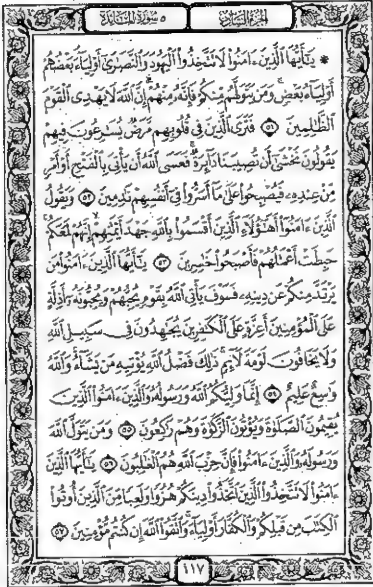 الجزء السادس ٥ سورة المائدة
* يَٰٓأَيُّهَا ٱلَّذِينَ ءَامَنُوا۟ لَا تَتَّخِذُوا۟ ٱلْيَهُودَ وَٱلنَّصَٰرَىٰٓ أَوْلِيَآءَ بَعْضُهُمْ
أَوْلِيَآءُ بَعْضٍ وَمَن يَتَوَلَّهُم مِّنكُمْ فَإِنَّهُۥ مِنْهُمْ إِنَّ ٱللَّهَ لَا يَهْدِى ٱلْقَوْمَ
ٱلظَّٰلِمِينَ ٥١ فَتَرَى ٱلَّذِينَ فِى قُلُوبِهِم مَّرَضٌ يُسَٰرِعُونَ فِيهِمْ
يَقُولُونَ نَخْشَىٰٓ أَن تُصِيبَنَا دَآئِرَةٌ فَعَسَى ٱللَّهُ أَن يَأْتِىَ بِٱلْفَتْحِ أَوْ أَمْرٍ
مِّنْ عِندِهِۦ فَيُصْبِحُوا۟ عَلَىٰ مَآ أَسَرُّوا۟ فِىٓ أَنفُسِهِمْ نَٰدِمِينَ ٥٢ وَيَقُولُ
ٱلَّذِينَ ءَامَنُوٓا۟ أَهَٰٓؤُلَآءِ ٱلَّذِينَ أَقْسَمُوا۟ بِٱللَّهِ جَهْدَ أَيْمَٰنِهِمْ إِنَّهُمْ لَمَعَكُمْ
حَبِطَتْ أَعْمَٰلُهُمْ فَأَصْبَحُوا۟ خَٰسِرِينَ ٥٣ يَٰٓأَيُّهَا ٱلَّذِينَ ءَامَنُوا۟ مَن
يَرْتَدَّ مِنكُمْ عَن دِينِهِۦ فَسَوْفَ يَأْتِى ٱللَّهُ بِقَوْمٍ يُحِبُّهُمْ وَيُحِبُّونَهُۥٓ أَذِلَّةٍ
عَلَى ٱلْمُؤْمِنِينَ أَعِزَّةٍ عَلَى ٱلْكَٰفِرِينَ يُجَٰهِدُونَ فِى سَبِيلِ ٱللَّهِ
وَلَا يَخَافُونَ لَوْمَةَ لَآئِمٍ ذَٰلِكَ فَضْلُ ٱللَّهِ يُؤْتِيهِ مَن يَشَآءُ وَٱللَّهُ
وَٰسِعٌ عَلِيمٌ ٥٤ إِنَّمَا وَلِيُّكُمُ ٱللَّهُ وَرَسُولُهُۥ وَٱلَّذِينَ ءَامَنُوا۟ ٱلَّذِينَ
يُقِيمُونَ ٱلصَّلَوٰةَ وَيُؤْتُونَ ٱلزَّكَوٰةَ وَهُمْ رَٰكِعُونَ ٥٥ وَمَن يَتَوَلَّ ٱللَّهَ
وَرَسُولَهُۥ وَٱلَّذِينَ ءَامَنُوا۟ فَإِنَّ حِزْبَ ٱللَّهِ هُمُ ٱلْغَٰلِبُونَ ٥٦ يَٰٓأَيُّهَا ٱلَّذِينَ
ءَامَنُوا۟ لَا تَتَّخِذُوا۟ ٱلَّذِينَ ٱتَّخَذُوا۟ دِينَكُمْ هُزُوًا وَلَعِبًا مِّنَ ٱلَّذِينَ أُوتُوا۟
ٱلْكِتَٰبَ مِن قَبْلِكُمْ وَٱلْكُفَّارَ أَوْلِيَآءَ وَٱتَّقُوا۟ ٱللَّهَ إِن كُنتُم مُّؤْمِنِينَ ٥٧
١١٧